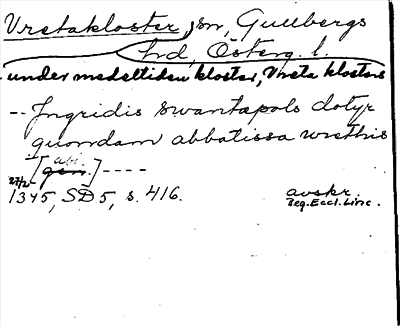 Vretakloster, sn, Gullbergs
hrd, Österg. l.
under medeltiden kloster, Vreta klosters
-- Ingridis swantapols dotyr
quondam abbatissa wrethis
abl.
[gen.] ----
27/2 1345, SD 5, s. 416.
avskr.
Reg. Eccl. Linc.